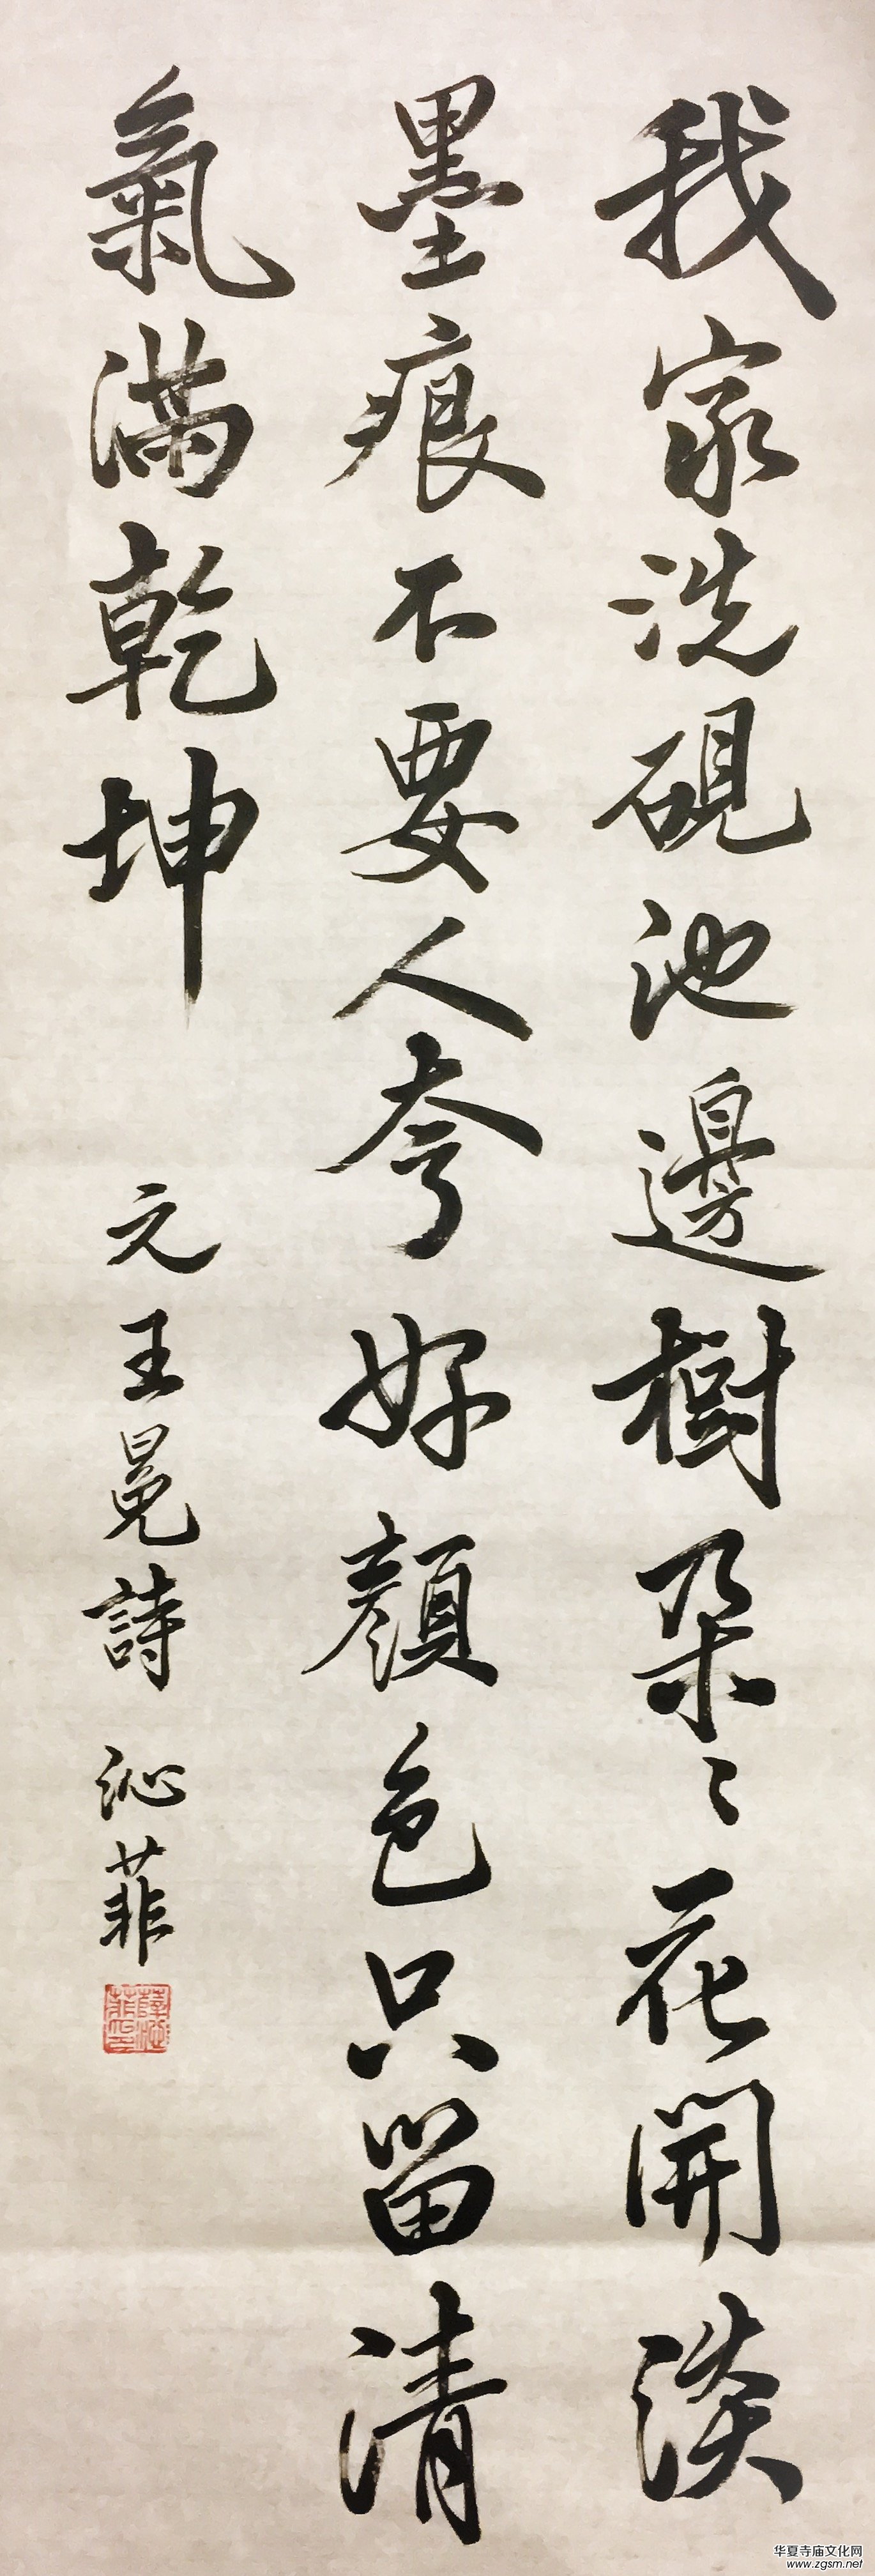 我家洗硯池邊樹朵〻花開淡
墨痕不要人夸好顏色只留清
氣滿乾坤
元王冕詩 沁菲
华夏寺庙文化网
www.zgsm.net